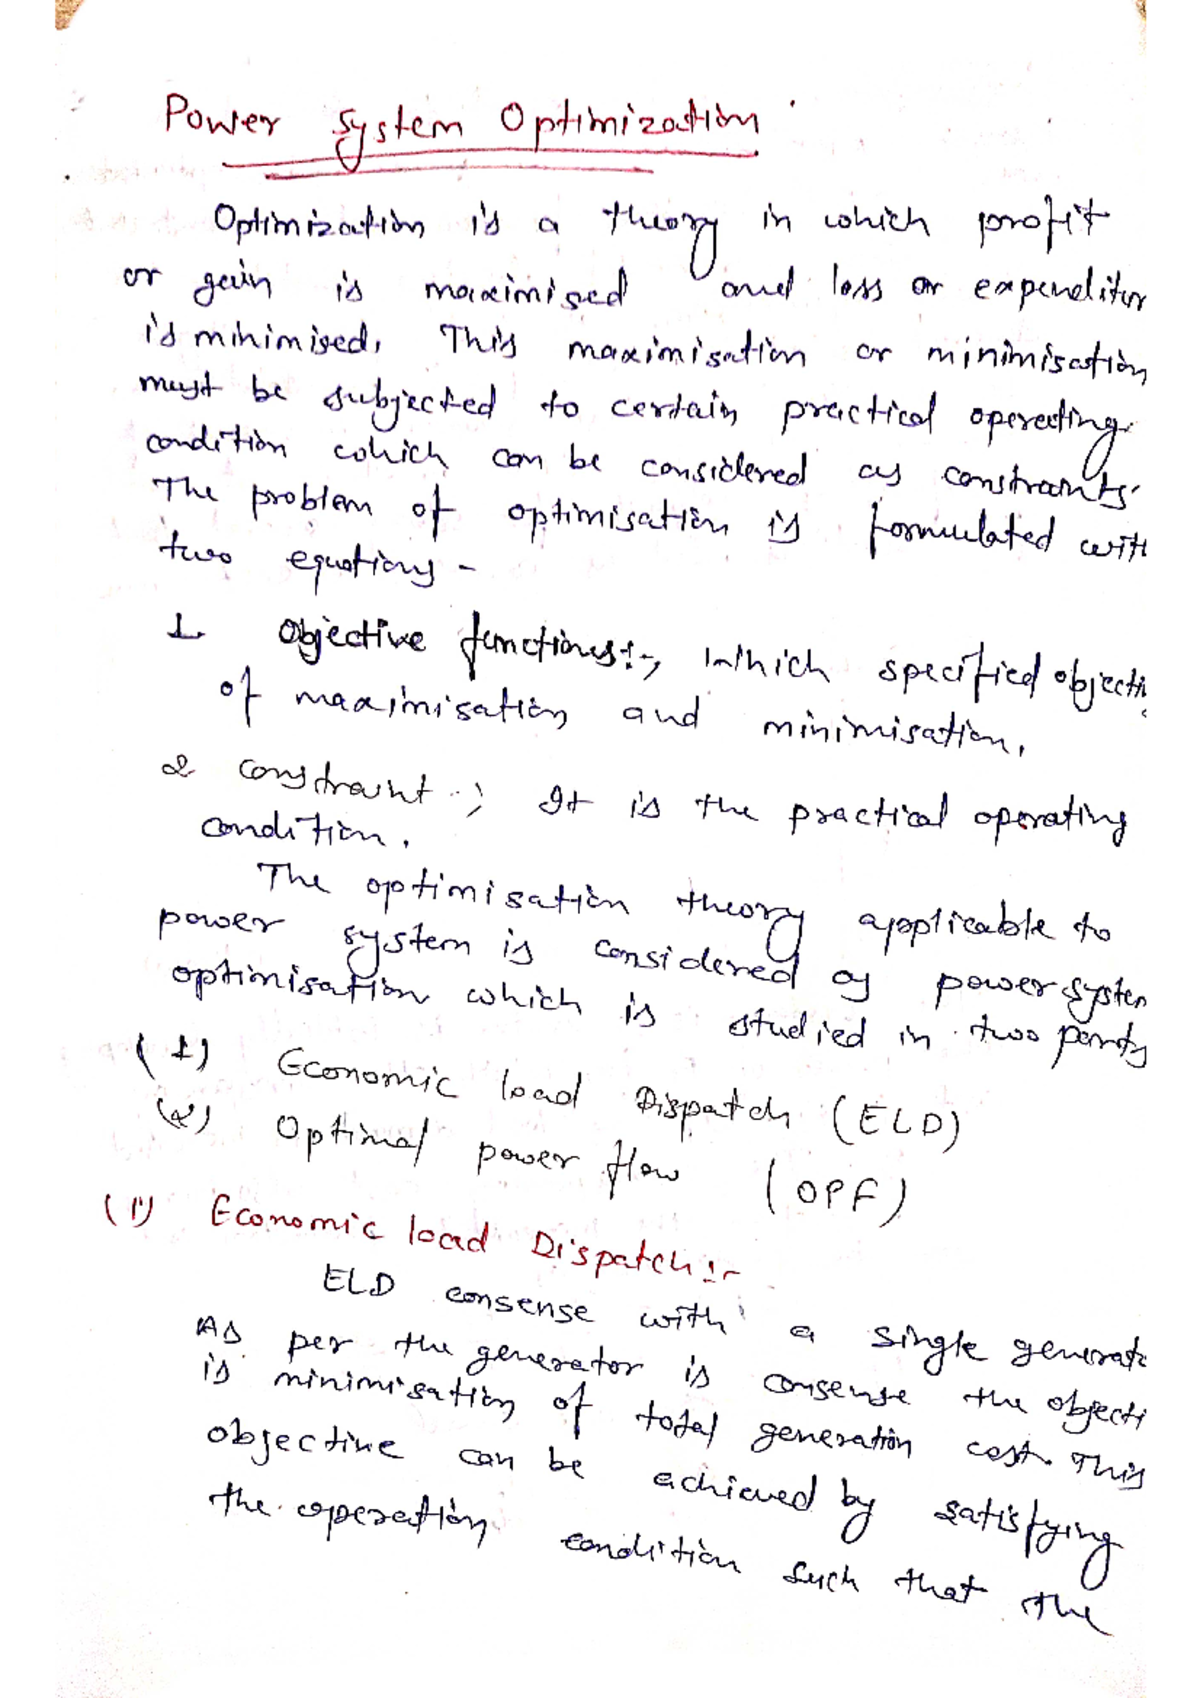 Power System Optimization
Optimization is a theory in which profit
or gain is maximised and loss or expenditur
is minimised, This maximisation or minimisation
must be subjected to certain practical operating
condition which can be considered as constraints.
The problem of optimisation is formulated with
two equations -
1. Objective functions:-, Which specified objecti
of maximisation and minimisation,
2 constraint :, It is the practical operating
condition.
The optimisation theory applicable to
power system is considered as power system
optimisation which is studied in two parts
(1) Economic load Dispatch (ELD)
(2) Optimal power flow (OPF)
(1) Economic load Dispatch:-
ELD consense with a single generato
As per the generator is consense the objecti
is minimisation of total generation cost. This
objective can be achieved by satisfying
the operation condition such that the